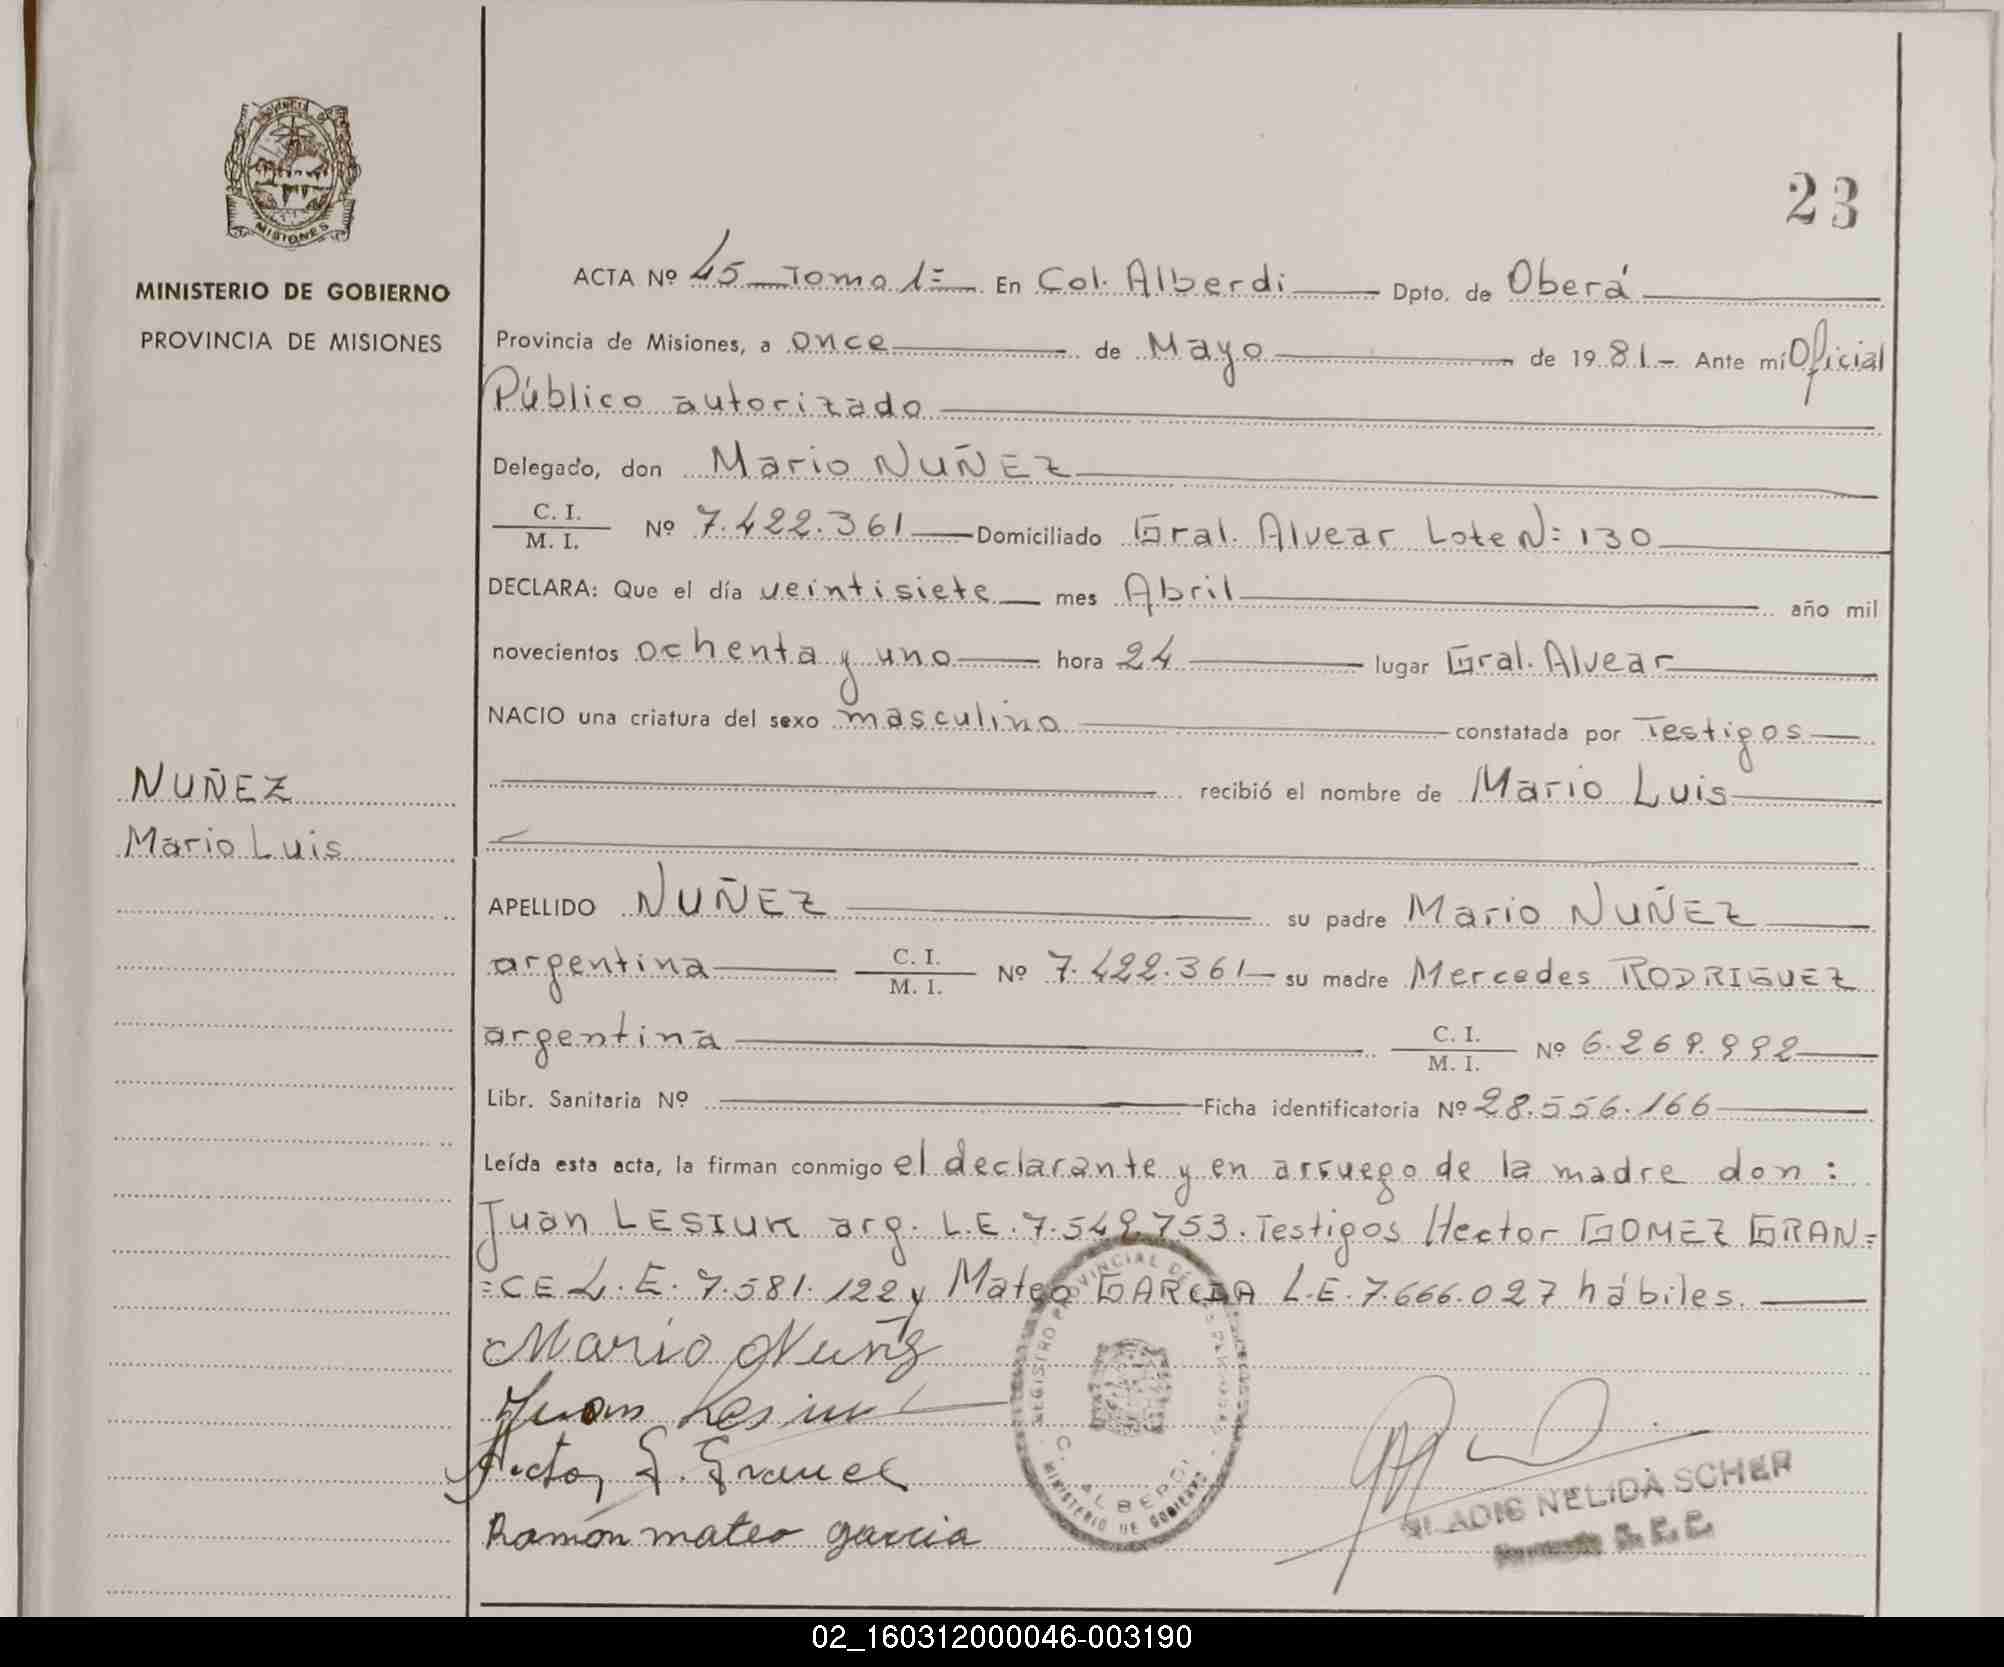 23
MISIONES
MINISTERIO DE GOBIERNO
PROVINCIA DE MISIONES
ACTA Nº 45 Tomo 1= En Col. Alberdi Dpto. de Oberá
Provincia de Misiones, a once de Mayo de 1981.- Ante mí Oficial
Público autorizado
Delegado, don Mario NUÑEZ
C. I.
M. I. Nº 7.422.361 Domiciliado Gral. Alvear Lote N= 130
DECLARA: Que el día veintisiete mes Abril año mil
novecientos ochenta y uno hora 24 lugar Gral. Alvear
NACIO una criatura del sexo masculino constatada por Testigos
recibió el nombre de Mario Luis
NUÑEZ
Mario Luis
APELLIDO NUÑEZ su padre Mario NUÑEZ
argentina C. I. M. I. Nº 7.422.361 su madre Mercedes RODRIGUEZ
argentina C. I. M. I. Nº 6.269.992
Libr. Sanitaria Nº Ficha identificatoria Nº 28.556.166
Leída esta acta, la firman conmigo el declarante y en arruego de la madre don:
Juan LESIUK arg. L.E. 7.549.753. Testigos Hector GOMEZ GRAN=
=CE L.E. 7.581.122 y Mateo GARCIA L.E. 7.666.027 hábiles.
Mario Nuñz
Juan Lesiuk
Hector G. Grance
Ramón mateo garcia
REGISTRO PROVINCIAL DE LAS PERSONAS
C. ALBERDI
MINISTERIO DE GOBIERNO
GLADIS NELIDA SCHER
02_160312000046-003190